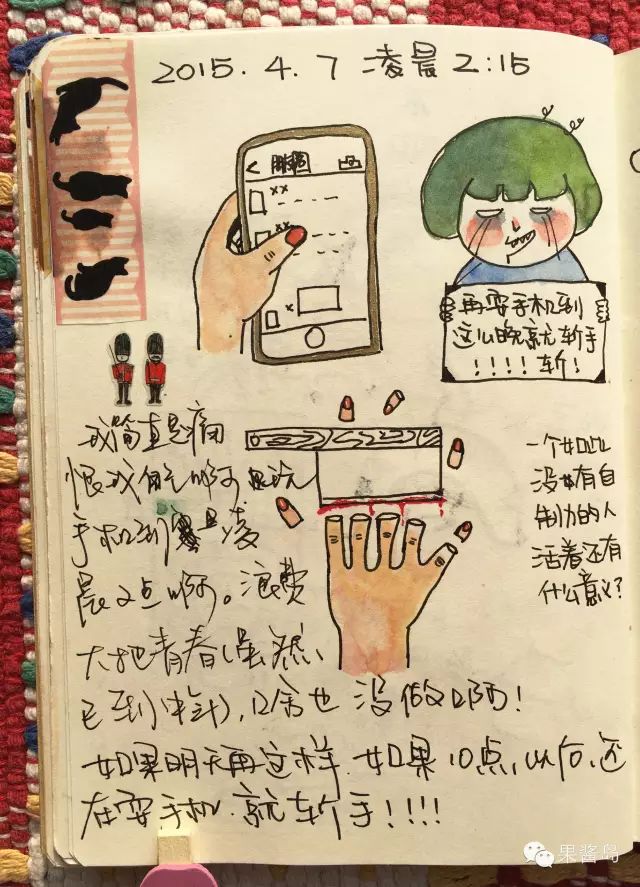 2015.4.7 凌晨2:15
××
××
×
再耍手机到
这么晚就斩手
!!!!斩!
我简直是痛
恨我自己啊啊 又玩
手机到凌
晨2点啊。浪费
大把青春(虽然
已到中年),啥也没做啊!
一个如此
没有自
制力的人
活着还有
什么意义?
如果明天再这样.如果10点以后,还
在耍手机.就斩手!!!!
果酱岛